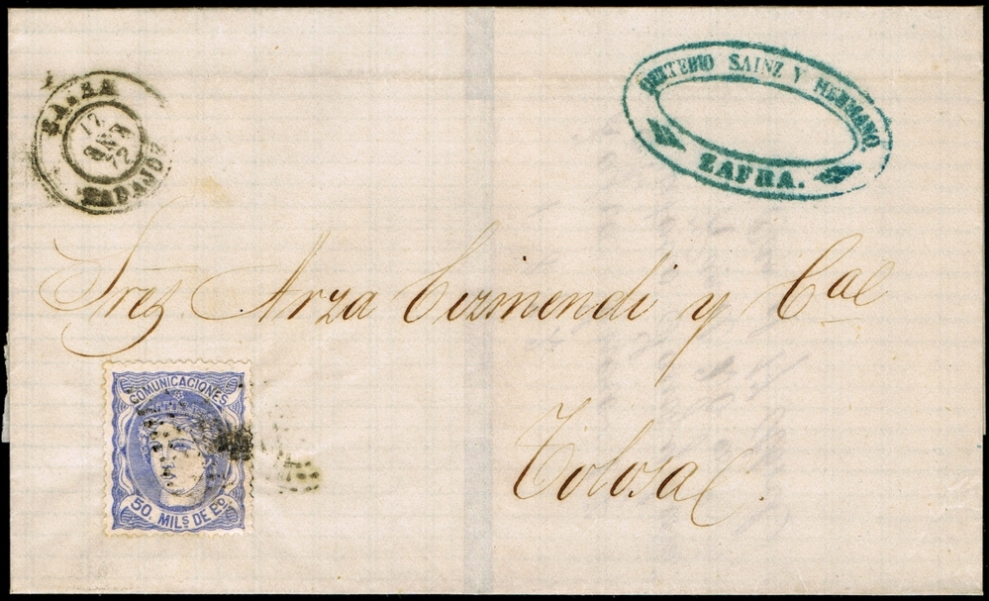 ZAFRA
17
ENE
72
BADAJOZ
SAINZ Y HERMANO.
ZAFRA.
Sres Arza Eizmendi y Cae
Tolosa.
COMUNICACIONES
50. MILS DE EO.